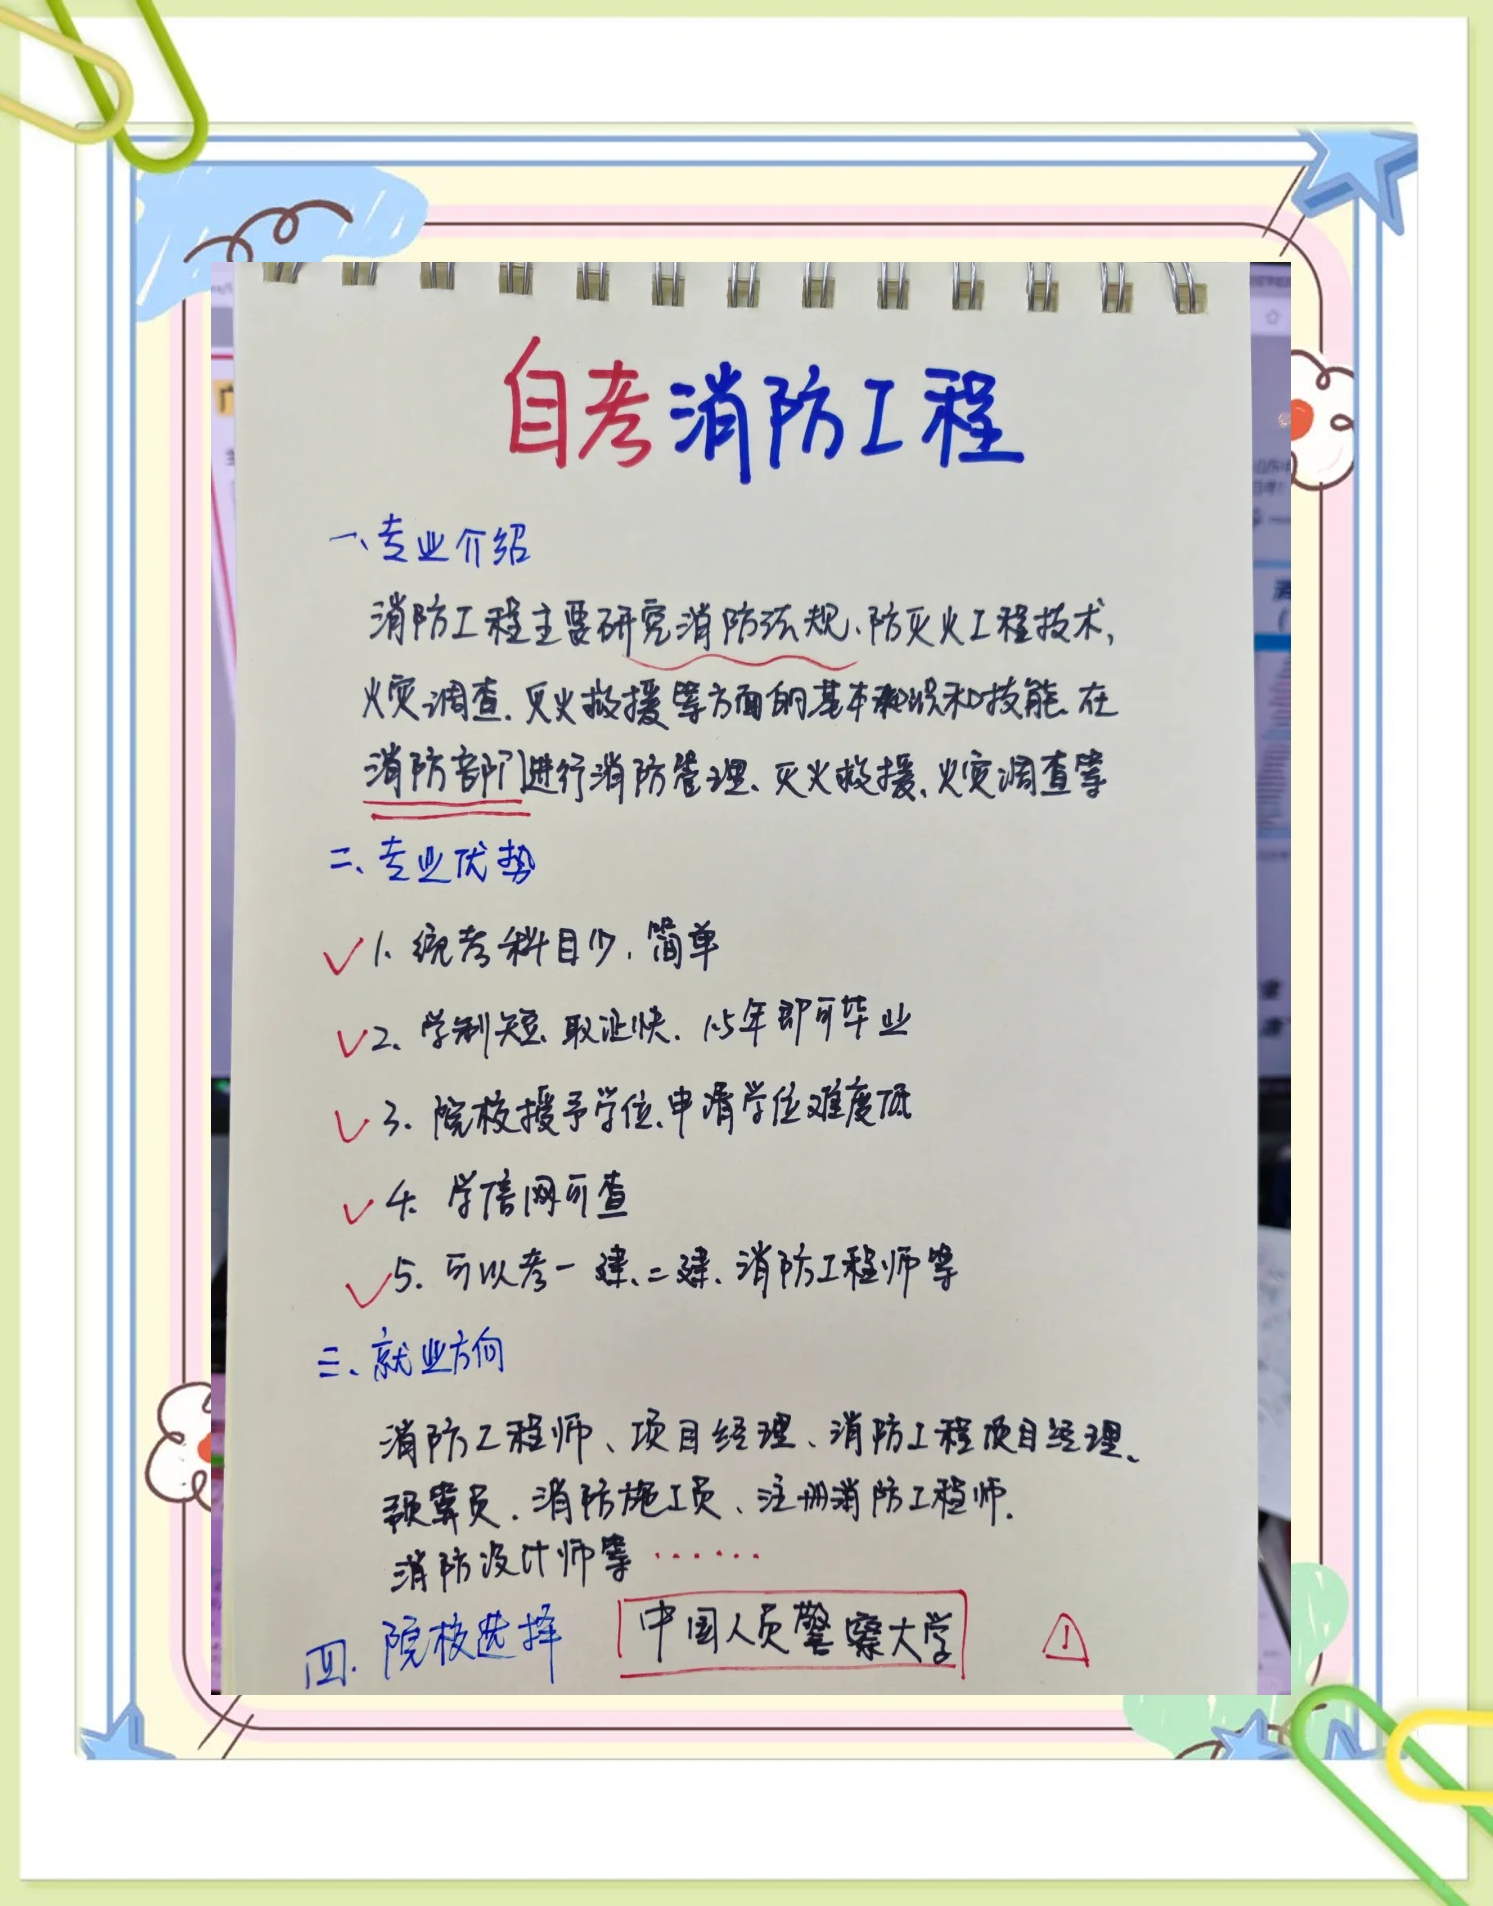 自考消防工程
一、专业介绍
消防工程主要研究消防法规、防灭火工程技术,
火灾调查、灭火救援等方面的基本知识和技能、在
消防部门进行消防管理、灭火救援、火灾调查等
二、专业优势
1. 统考科目少、简单
2. 学制短、取证快、1.5年即可毕业
3. 院校授予学位、申请学位难度低
4. 学信网可查
5. 可以考一建、二建、消防工程师等
三、就业方向
消防工程师、项目经理、消防工程项目经理、
预算员、消防施工员、注册消防工程师.
消防设计师等 ······
四. 院校选择 中国人民警察大学 1